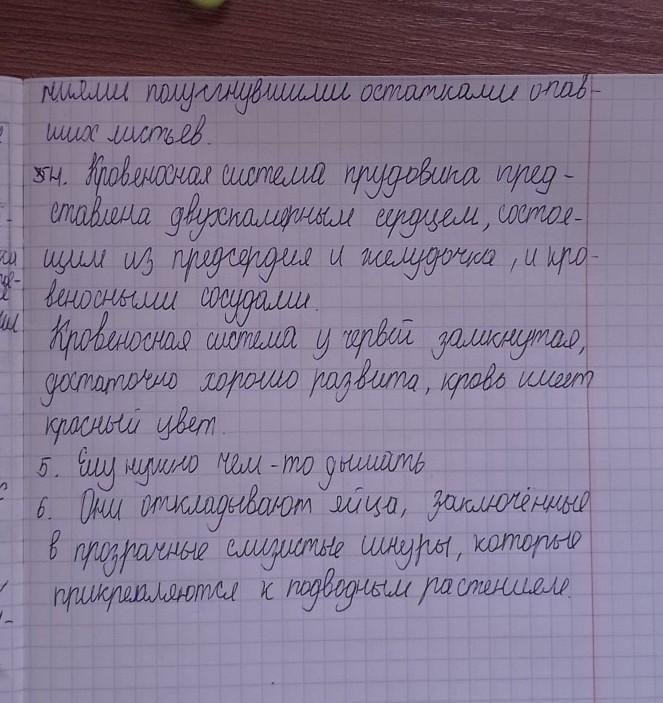 ниями полусгнувшими остатками опав-
ших листьев.
4. Кровеносная система прудовика пред-
ставлена двухкамерным сердцем, состоя-
щим из предсердия и желудочка, и кро-
веносными сосудами.
Кровеносная система у червей замкнутая,
достаточно хорошо развита, кровь имеет
красный цвет.
5. Ему нужно чем-то дышать
6. Они откладывают яйца, заключённые
в прозрачные слизистые шнуры, которые
прикрепляются к подводным растением.